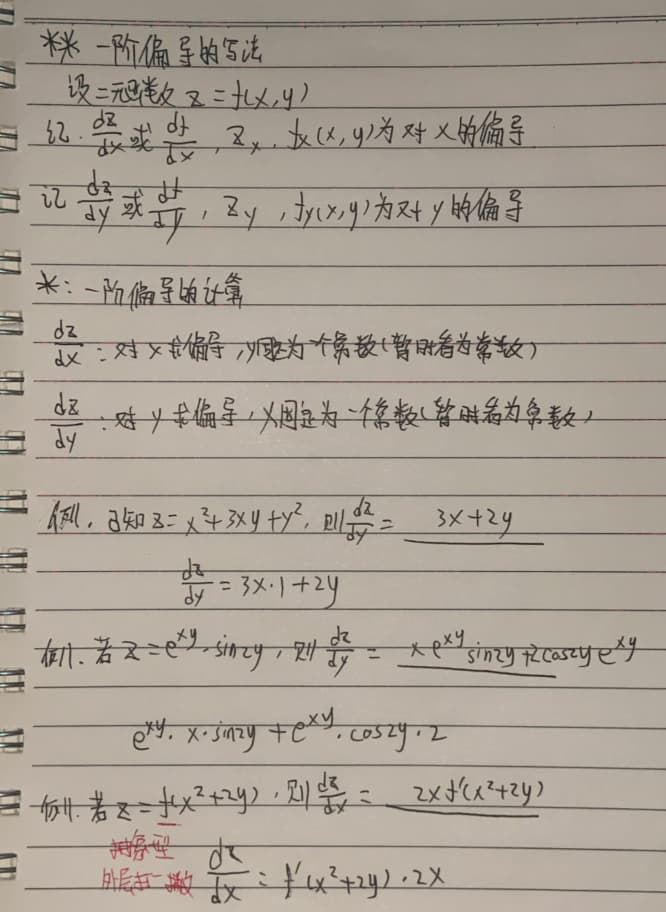 ** 一阶偏导的写法
设二元函数 z = f(x,y)
记. dz/dx 或 df/dx , Zx . fx(x,y)为对 x 的偏导
记 dz/dy 或 df/dy , Zy , fy(x,y)为对 y 的偏导
*: 一阶偏导的计算
dz/dx : 对 x 求偏导,y固定为一个常数(暂时看为常数)
dz/dy : 对 y 求偏导,x固定为一个常数(暂时看为常数)
例1. 已知 z = x²+3xy+y², 则 dz/dy = 3x+2y
dz/dy = 3x·1+2y
例1. 若 z = e^xy · sin2y , 则 dz/dy = xe^xy sin2y+2cos2ye^xy
e^xy · x · sin2y + e^xy · cos2y · 2
例1. 若 z = f(x²+2y) , 则 dz/dx = 2xf'(x²+2y)
抽象型
dz/dx = f'(x²+2y)·2x
外层求一撇